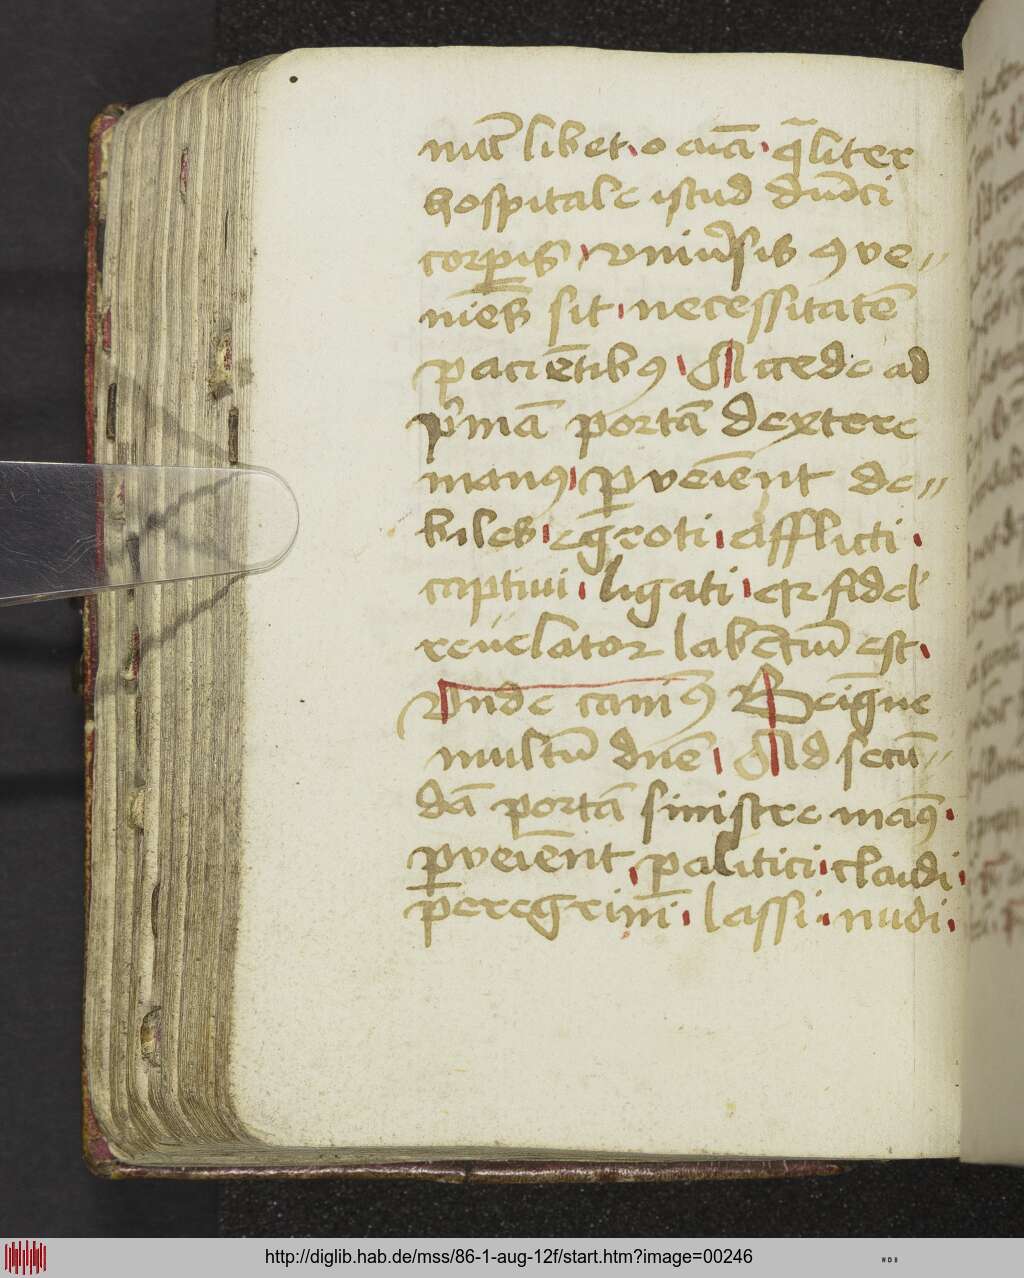 nūc libet · o aīa · qͣliter
hospitale istud dūici
corpis · vniūsis ꝯue〃
niēs sit · necessitatē
paciētibꝰ · Accede ad
pͥmā portā dextere
manꝰ · ꝑveīent de〃
biles · egroti · afflicti ·
captiui · ligati · qr fidel'
reuelator labētiū est ·
Unde caniꝰ Beigne
multū dnē · Ad secū〃
dā portā sinistre maꝰ ·
ꝑveiēnt · ꝑalitici · claudi ·
peregrini · lassi · nudi ·
http://diglib.hab.de/mss/86-1-aug-12f/start.htm?image=00246